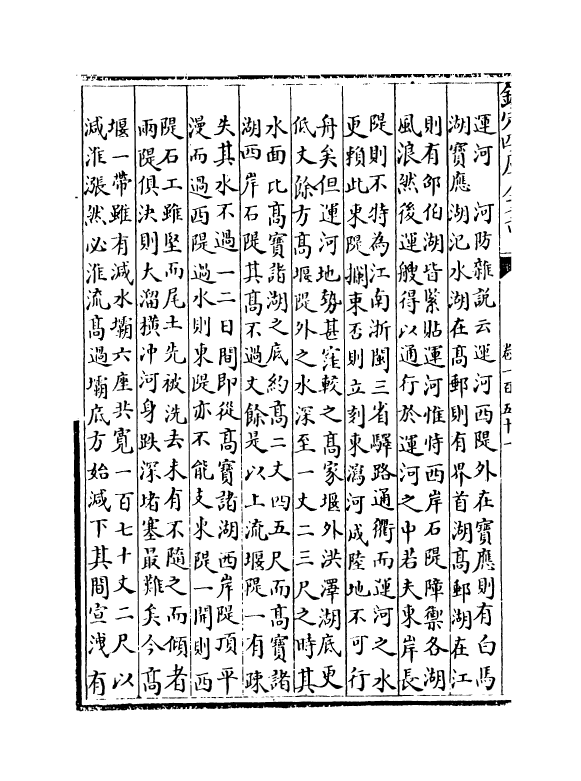 欽定四庫全書
卷一百五十一
運河　河防雜說云運河西隄外在寶應則有白馬
湖寶應湖氾水湖在髙郵則有界首湖髙郵湖在江
則有邵伯湖皆緊貼運河惟恃西岸石隄障禦各湖
風浪然後運艘得以通行於運河之中若夫東岸長
隄則不特為江南浙閩三省驛路通衢而運河之水
更賴此東隄攔束否則立刻東瀉河成陸地不可行
舟矣但運河地勢甚窪較之髙家堰外洪澤湖底更
低丈餘方髙堰隄外之水深至一丈二三尺之時其
水面比髙寶諸湖之底約髙二丈四五尺而髙寶諸
湖西岸石隄其髙不過丈餘是以上流堰隄一有疎
失其水不過一二日間即從髙寶諸湖西岸隄頂平
漫而過西隄過水則東隄亦不能支東隄一開則西
隄石工雖堅而尾土先被洗去未有不隨之而傾者
兩隄俱决則大溜橫冲河身跌深堵塞最難矣今髙
堰一帶雖有減水壩六座共寛一百七十丈二尺以
減淮漲然必淮流髙過壩底方始減下其間宣洩有